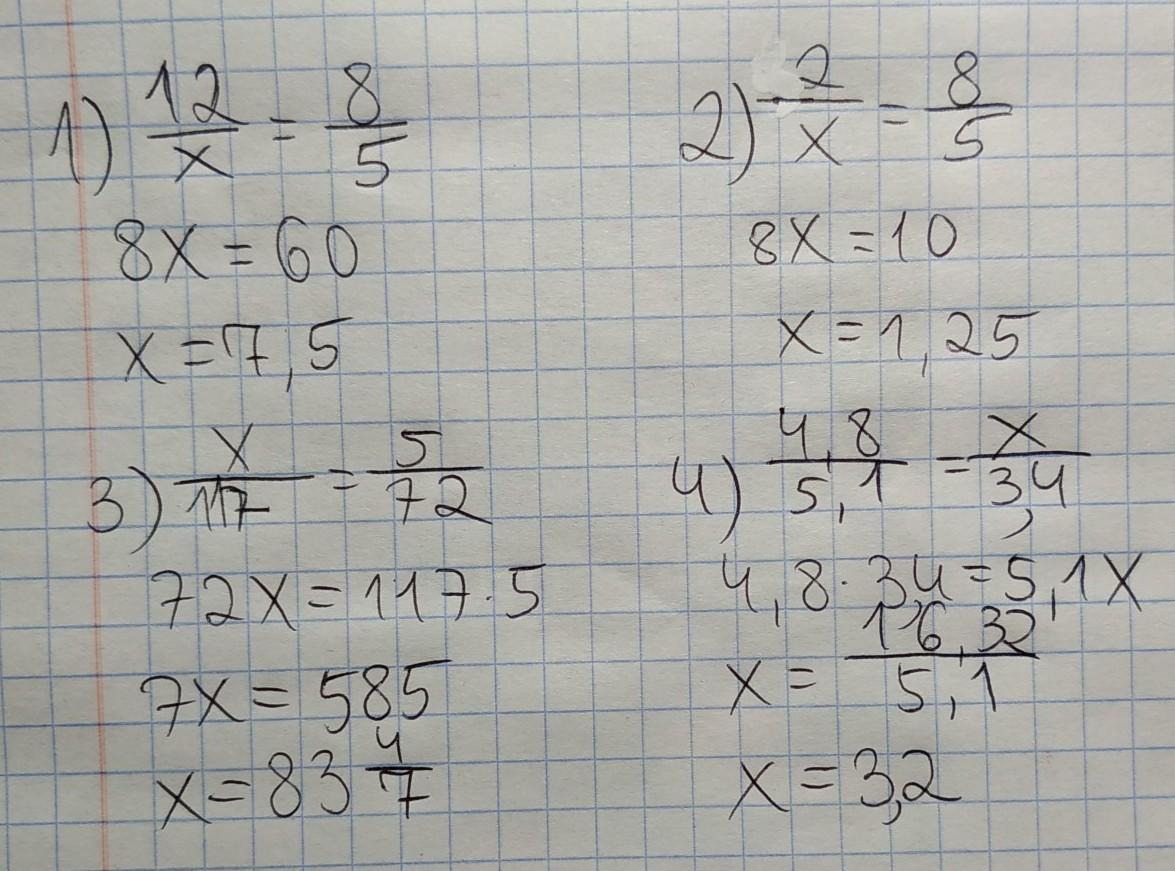 1) 12/x = 8/5
8x = 60
x = 7,5
2) 2/x = 8/5
8x = 10
x = 1,25
3) x/117 = 5/72
72x = 117·5
7x = 585
x = 83 4/7
4) 4,8/5,1 = x/3,4
4,8·34 = 5,1x
x = 116,32/5,1
x = 3,2